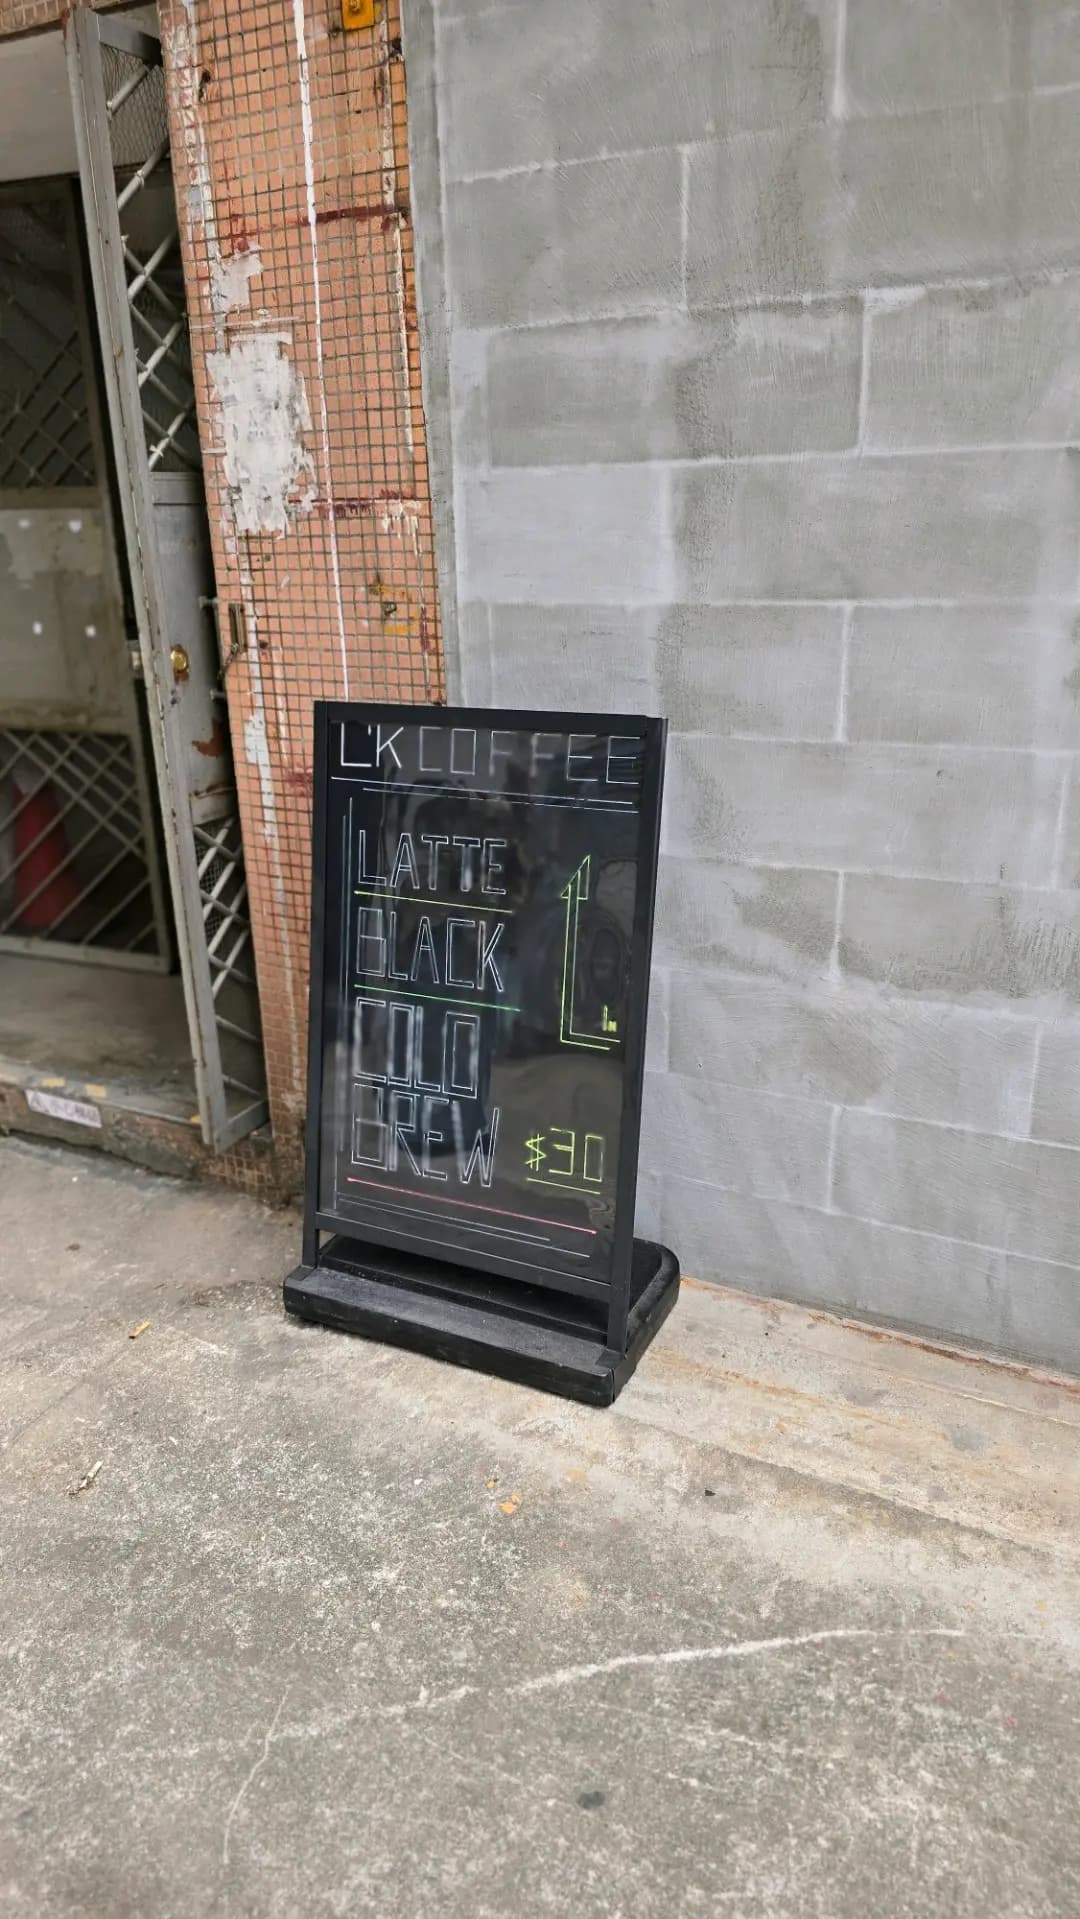 L'K COFFEE
LATTE
BLACK
COLD
BREW
In
$30